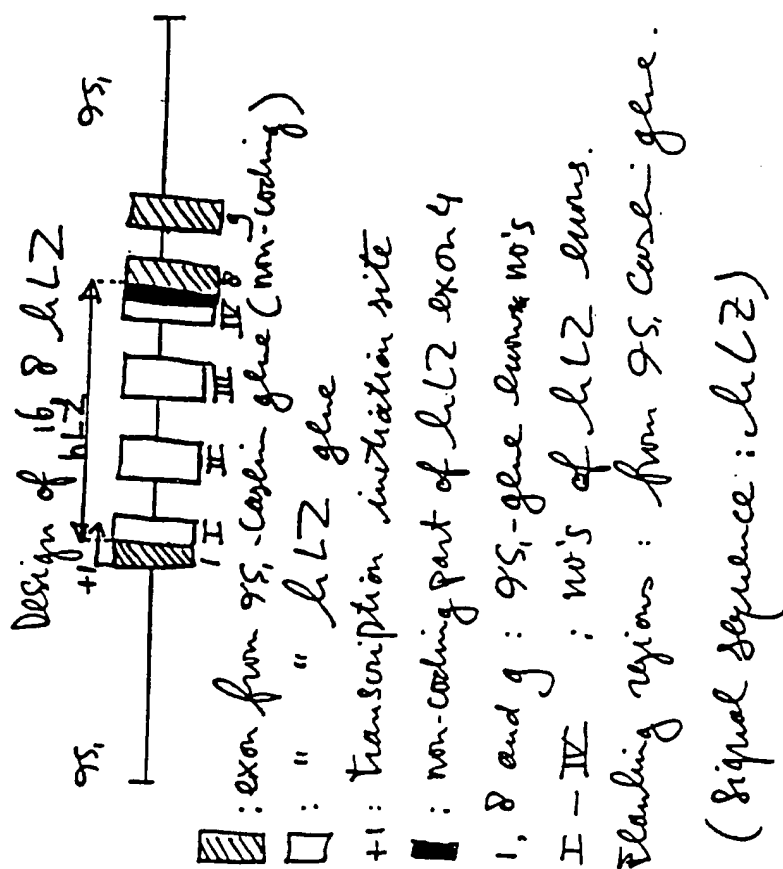 Design of 16,8 hLZ
+1 hLZ
αS₁ αS₁
1 I II III IV 8 9
: exon from αS₁-casein gene (non-coding)
: " " hLZ gene
+1 : transcription initiation site
: non-coding part of hLZ exon 4
1, 8 and 9 : αS₁-gene exon no's
I - IV : no's of hLZ exons.
Flanking regions : from αS₁ casein gene.
(signal sequence : hLZ)